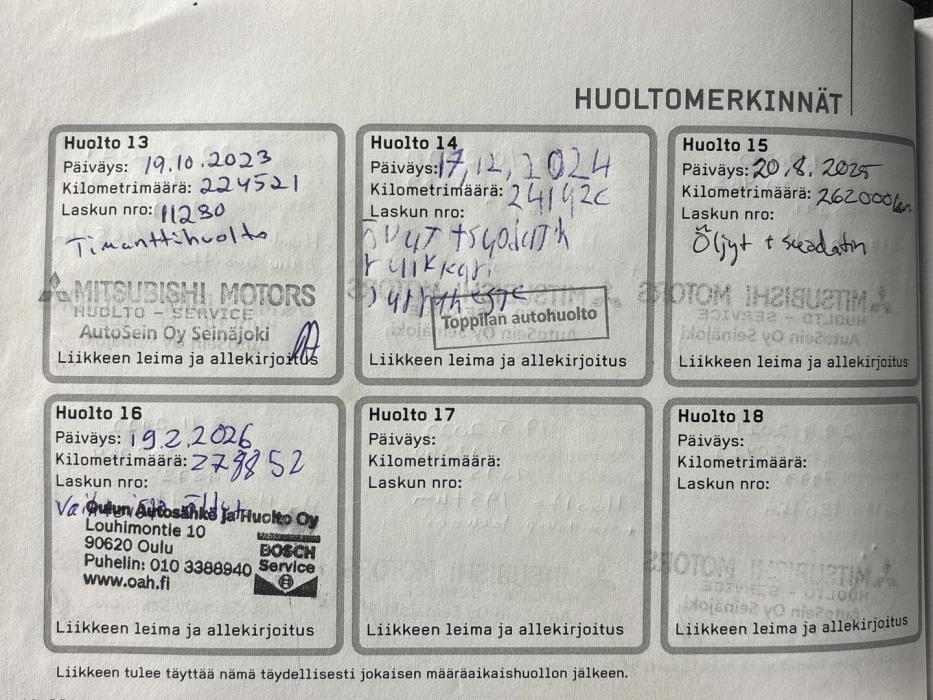 HUOLTOMERKINNÄT
Huolto 13
Päiväys: 19.10.2023
Kilometrimäärä: 224521
Laskun nro: 11280
Timanttihuolto
MITSUBISHI MOTORS
HUOLTO - SERVICE
AutoSein Oy Seinäjoki
Liikkeen leima ja allekirjoitus
Huolto 14
Päiväys: 17,12,2024
Kilometrimäärä:
Laskun nro:
Toppilan autohuolto
Liikkeen leima ja allekirjoitus
Huolto 15
Päiväys: 20.8.2025
Kilometrimäärä: 262000km
Laskun nro:
Öljyt + suodatin
Liikkeen leima ja allekirjoitus
Huolto 16
Päiväys: 19.2.2026
Kilometrimäärä: 278852
Laskun nro:
Öljyt
Oulun Autosähkö ja Huolto Oy
Louhimontie 10
90620 Oulu
Puhelin: 010 3388940
www.oah.fi
BOSCH
Service
Liikkeen leima ja allekirjoitus
Huolto 17
Päiväys:
Kilometrimäärä:
Laskun nro:
Liikkeen leima ja allekirjoitus
Huolto 18
Päiväys:
Kilometrimäärä:
Laskun nro:
Liikkeen leima ja allekirjoitus
Liikkeen tulee täyttää nämä täydellisesti jokaisen määräaikaishuollon jälkeen.